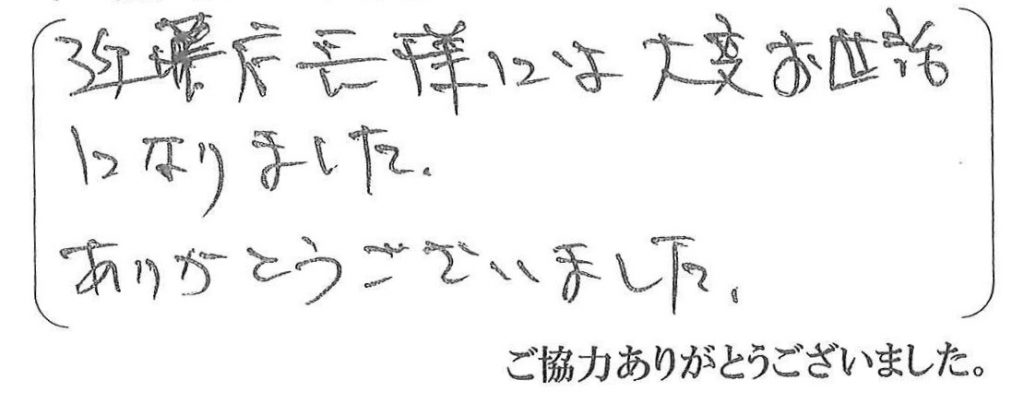 店長様には大変お世話
になりました。
ありがとうございました。
ご協力ありがとうございました。